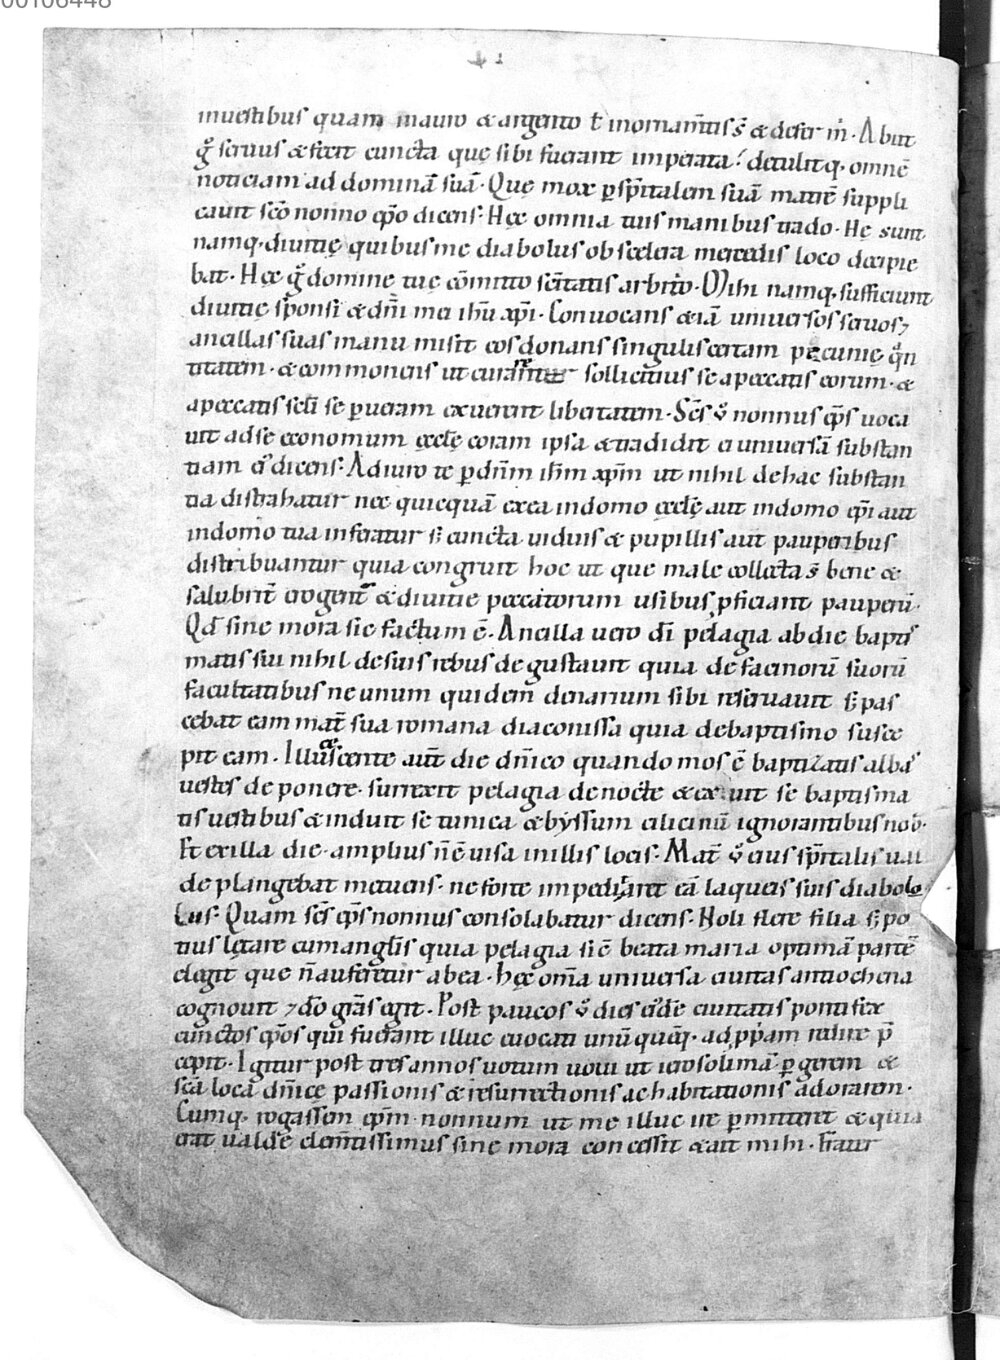 00106448
inuestibus quam inauro & argento ł inornam̄tis s̄ & defer m̍. Abut
g̊ seruus & fecit cuncta quę sibi fuerant imperata? detulitq. omnē
noticiam ad dominā suā. Quę mox ꝑ sp̄italem suā matrē suppli
cauit sc̄o nonno ep̄o dicens. Hęc omnia tuis manibus trado. Hę sunt
namq. diuitię quibus me diabolus ob scelera mercedis loco decipie
bat. Hęc g̊ domine tuę cōmitto sc̄itatis arbitrio. Mihi namq. sufficiunt
diuitię sponsi & dn̄i mei ih̄u xp̄i. Conuocans & iā uniuersos seruos ⁊
ancillas suas manu misit eos donans singulis certam pecunię qn̄
titatem. & commonens ut curarent sollicitius se a peccatis eorum. &
a peccatis scl̄i se ꝑ ueram exuerent libertatem. Sc̄s ů nonnus ep̄s uoca
uit ad se economum ęccl̄ę coram ipsa & tradidit ei uniuersā substan
tiam ei᷒ dicens. Adiuro te ꝑ dn̄m ih̄m xp̄m ut nihil de hac substan
tia distrahatur nec quicquā ex ea in domo ęccl̄ę aut in domo ep̄i aut
in domo tua inferatur s; cuncta uiduis & pupillis aut pauperibus
distribuantur quia congruit hoc ut quę male collecta s̄ bene &
salubrit̄ erogent & diuitię peccatorum usibus ꝓficiant pauperū.
Qd̄ sine mora sic factum ē. Ancilla uero dī pelagia ab die bapti
matis sui nihil de suis rebus degustauit quia de facinorū suorū
facultatibus ne unum quidem denarium sibi reseruauit s; pas
cebat eam mat̄ sua romana diaconissa quia de baptismo susce
pit eam. Illuscente aut̄ die dn̄ico quando mos ē baptizatis albas
uestes deponere. surrexit pelagia de nocte & exuit se baptisma
tis uestibus & induit se tunica & byssum cilicinū ignorantibus nob.
Et ex illa die. amplius n̄ ē uisa in illis locis. Mat̄ ů eius sp̄italis ual
de plangebat metuens. ne forte impediret eā laqueis suis diabolo
lus. Quam sc̄s ep̄s nonnus consolabatur dicens. Noli flere filia s; po
tius lętare cum angl̄is quia pelagia sic̄ beata maria optimā partē
elegit quę n̄ auferetur ab ea. Hęc om̄a uniuersa ciuitas antiochena
cognouit ⁊ dō grās egit. Post paucos ů dies ei᷒dē ciuitatis pontifex
cunctos ep̄os qui fuerant illuc euocati unūquēq. ad pp̍am redire p̄
cepit. Igitur post tres annos uotum uoui ut ierosolimā ꝑgerem &
sc̄a loca dn̄icę passionis & resurrectionis ac habitationis adorarem.
Cumq. rogassem ep̄m nonnum ut me illuc ire ꝑmitteret & quia
erat ualde clem̄tissimus sine mora concessit & ait mihi. Frater